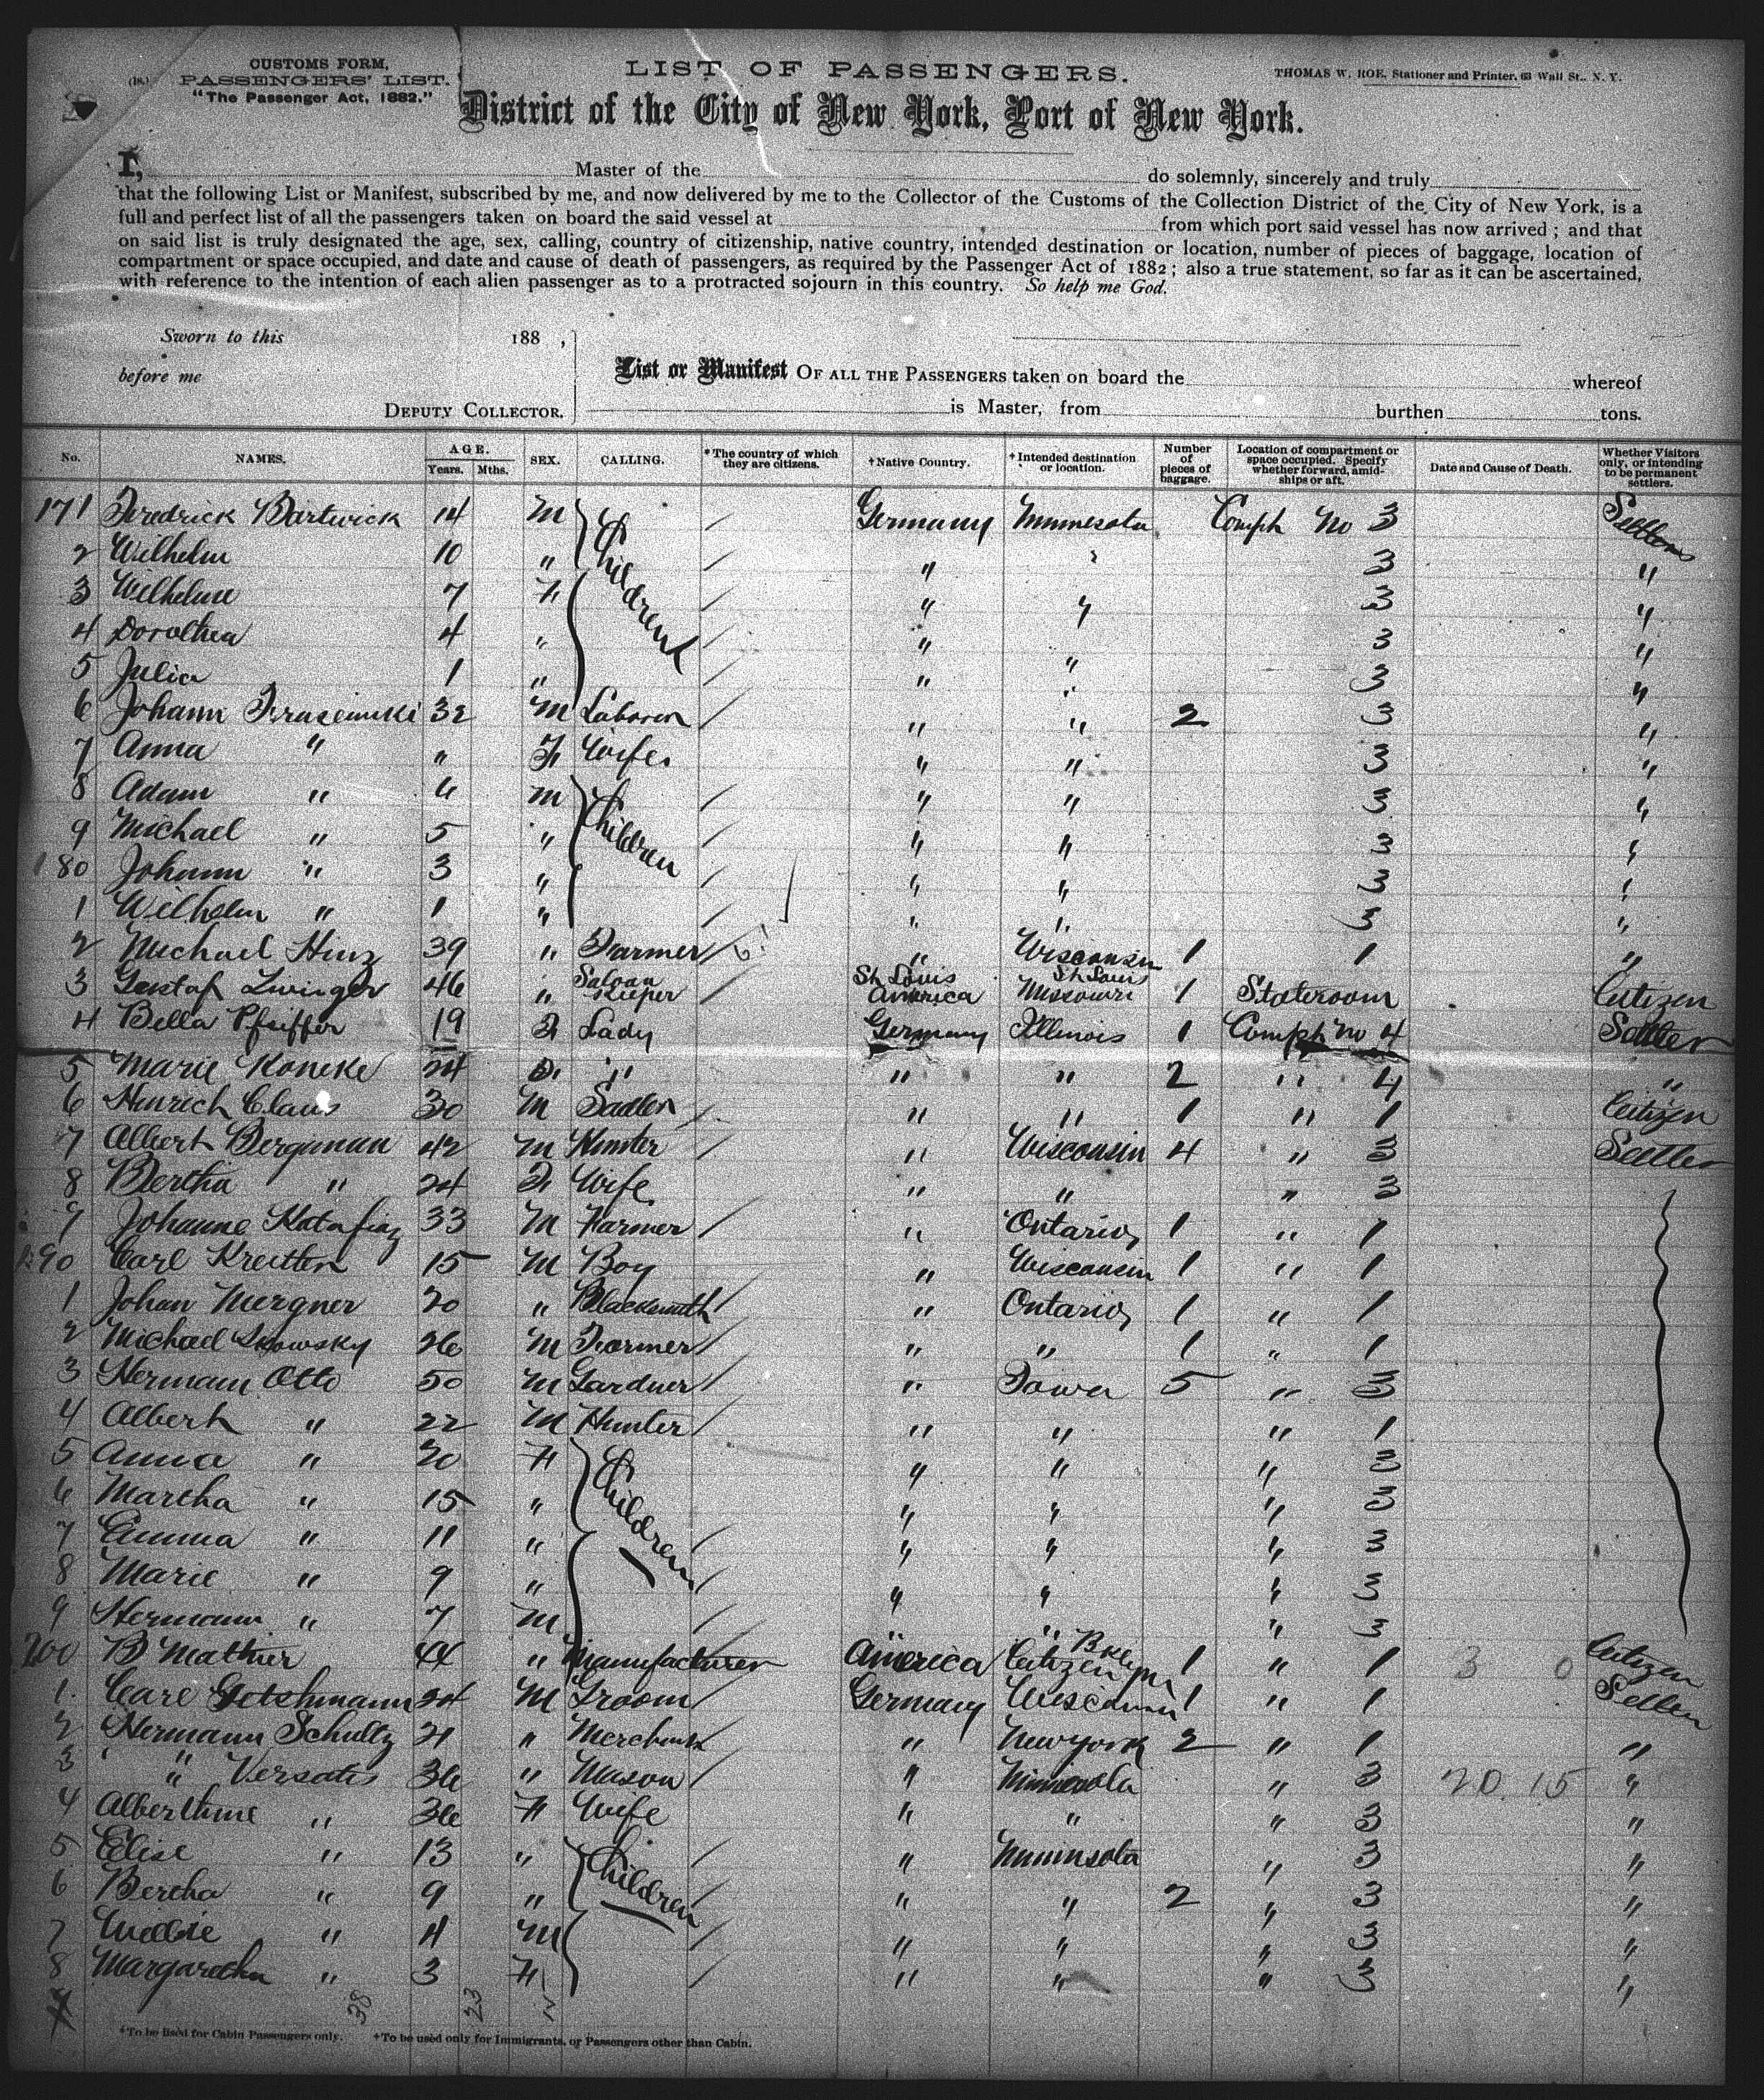 CUSTOMS FORM.
(18.) PASSENGERS' LIST.
"The Passenger Act, 1882."
LIST OF PASSENGERS.
THOMAS W. ROE, Stationer and Printer, 63 Wall St., N. Y.
District of the City of New York, Port of New York.
I, Master of the do solemnly, sincerely and truly
that the following List or Manifest, subscribed by me, and now delivered by me to the Collector of the Customs of the Collection District of the City of New York, is a
full and perfect list of all the passengers taken on board the said vessel at from which port said vessel has now arrived ; and that
on said list is truly designated the age, sex, calling, country of citizenship, native country, intended destination or location, number of pieces of baggage, location of
compartment or space occupied, and date and cause of death of passengers, as required by the Passenger Act of 1882 ; also a true statement, so far as it can be ascertained,
with reference to the intention of each alien passenger as to a protracted sojourn in this country. So help me God.
Sworn to this 188 ,
before me
DEPUTY COLLECTOR.
List or Manifest OF ALL THE PASSENGERS taken on board the whereof
is Master, from burthen tons.
No. NAMES. AGE. Years. Mths. SEX. CALLING. *The country of which they are citizens. †Native Country. †Intended destination or location. Number of pieces of baggage. Location of compartment or space occupied. Specify whether forward, amidships or aft. Date and Cause of Death. Whether Visitors only, or intending to be permanent settlers.
171 Fredrick Bartwick 14 M Children / Germany Minnesota Compt No 3 Settlers
2 Wilhelm 10 " / " " 3 "
3 Wilhelme 7 F / " " 3 "
4 Dorothea 4 " / " " 3 "
5 Julia 1 " / " " 3 "
6 Johann 32 M Laborer / " " 2 3 "
7 Anna " " F Wife " " 3 "
8 Adam " 6 M Children / " " 3 "
9 Michael " 5 " / " " 3 "
180 Johann " 3 " / " " 3 "
1 Wilhelm " 1 " / " " 3 "
2 Michael Hinz 39 " Farmer / " Wisconsin 1 1 "
3 Gustaf 46 " Saloon Keeper / St Louis America St Louis Missouri 1 Stateroom Citizen
4 Bella Pfeiffer 19 F Lady Germany Illinois 1 Compt No 4 Settler
5 Marie Koneke 24 F " " " 2 " 4 "
6 Hinrich Claus 30 M Sadler / " " 1 " 1 Citizen
7 Albert Bergman 42 M Hunter / " Wisconsin 4 " 3 Settler
8 Bertha " 24 F Wife " " " 3
9 Johanne 33 M Farmer / " Ontario 1 " 1
190 Carl 15 M Boy " Wisconsin 1 " 1
1 Johan Mergner 20 " Blacksmith / " Ontario 1 " 1
2 Michael 26 M Farmer / " " 1 " 1
3 Hermann Otto 50 M Gardner / " Iowa 5 " 3
4 Albert " 22 M Hunter / " " " 1
5 Anna " 20 F Children " " " 3
6 Martha " 15 " " " " 3
7 Emma " 11 " / " " " 3
8 Marie " 9 " / " " " 3
9 Hermann " 7 M / " " " 3
200 B Mathier 44 " Manufacturer America Citizen Bklyn 1 " 1 3 0 Citizen
1 Carl Getshmann 24 M Groom / Germany Wisconsin 1 " 1 Settler
2 Hermann Schultz 21 " Merchant " New York 2 " 1 "
3 " Versatis 36 " Mason / " Minnesota " 3 20. 15 "
4 Alberthine " 36 F Wife " " " 3 "
5 Elise " 13 " Children / " Minnsota " 3 "
6 Bertha " 9 " / " " 2 " 3 "
7 Willie " 4 M / " " " 3 "
8 Margaretha " 3 F / " " " 3 "
38 23
*To be used for Cabin Passengers only. †To be used only for Immigrants, or Passengers other than Cabin.